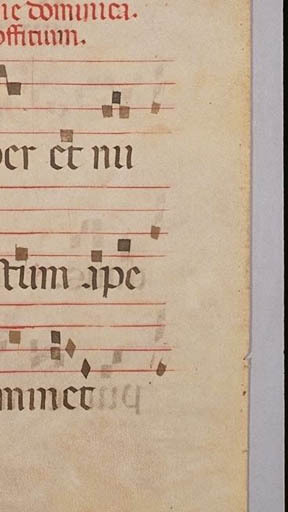 dominica.
offitium.
per et nu
stum ape
minet